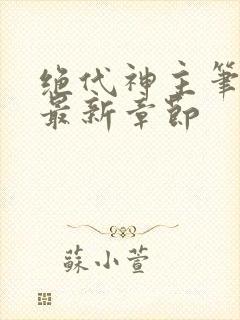 绝代神主筆
最新章節
蘇小萱